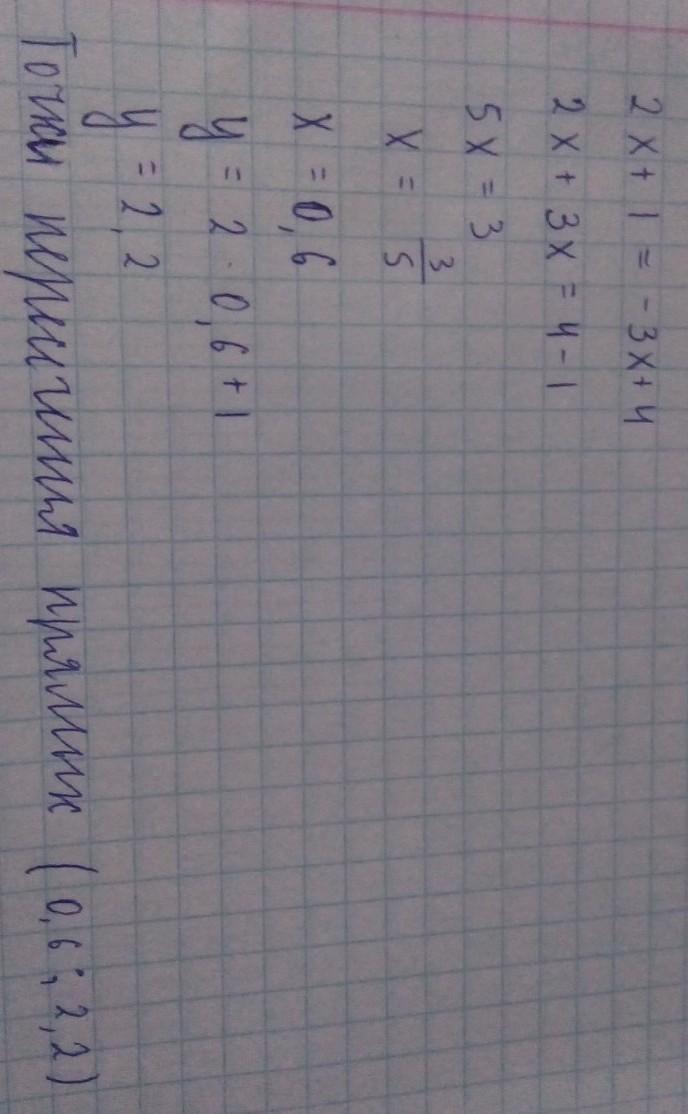 2x + 1 = -3x + 4
2x + 3x = 4 - 1
5x = 3
x = 3/5
x = 0,6
y = 2 · 0,6 + 1
y = 2,2
Точки пересичения прямых (0,6 ; 2,2)